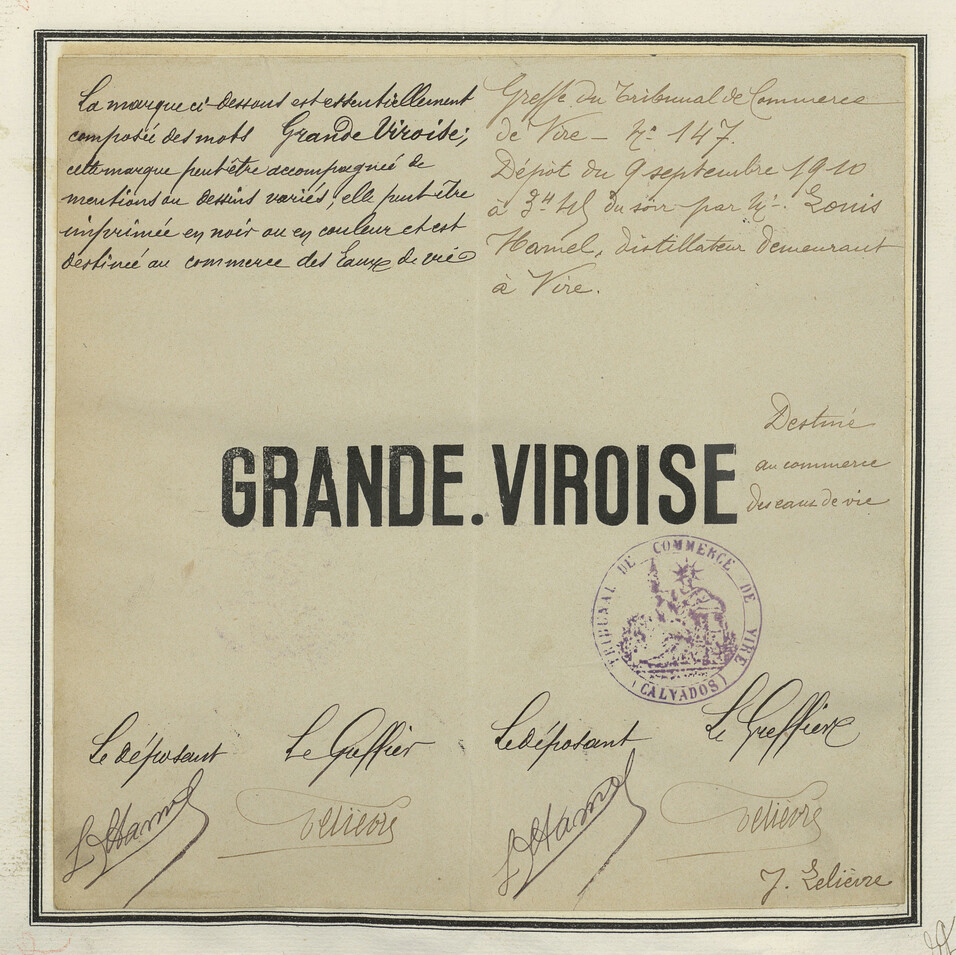 La marque ci-dessous est essentiellement
composée des mots Grande Viroise;
cette marque peut être accompagnée de
mentions ou dessins variés, elle peut être
imprimée en noir ou en couleur et est
destinée au commerce des Eaux de vie
Greffe du Tribunal de Commerce
de Vire - No 147.
Dépôt du 9 septembre 1910
à 3 H du soir par M. Louis
Hamel, distillateur demeurant
à Vire.
Destiné
au commerce
des eaux de vie
GRANDE. VIROISE
TRIBUNAL DE COMMERCE DE VIRE
(CALVADOS)
Le déposant Le Greffier Le déposant Le Greffier
L Hamel Lelièvre L Hamel Lelièvre
J. Lelièvre